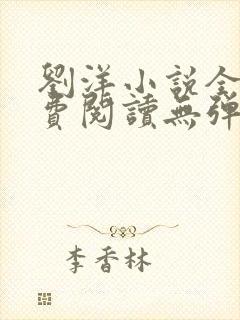 劉洋小說全
費閱讀無彈
李香林